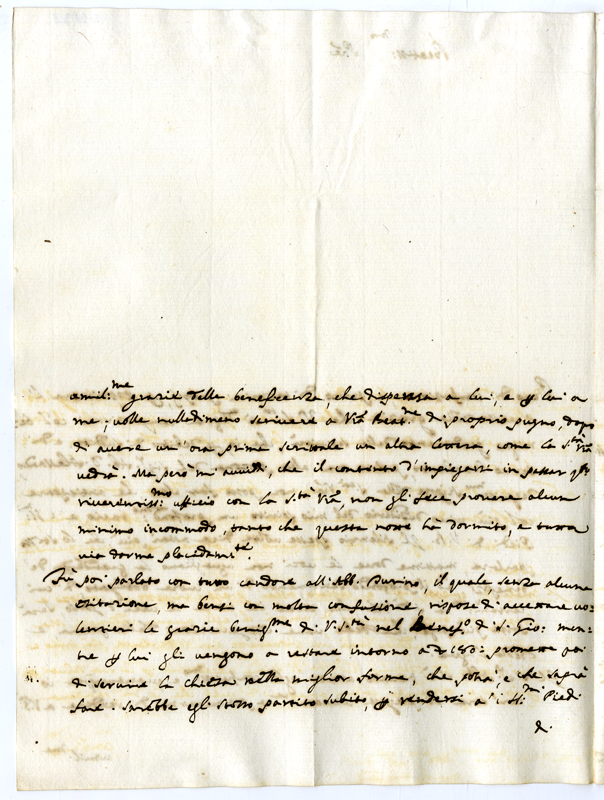 umil:me grazie della beneficenza, che dispensa a lui, e p lui a
me; volle nulladimeno scrivere a Vra Beat.ne di proprio pugno, dopo
di avere un' ora prima scrittale un altra lettera, come la S.tà Vra
vedrà. Ma però mi avvidi, che il contento d'impiegarsi in passar
riverentiss:mo ufficio con la S.tà Vra, non gli fece provare alcun
minimo incommodo, tanto che questa notte hà dormito, e tutta
via dorme placidam.te.
Fù poi parlato con tutto candore all'Abb. Durino, il quale, senza alcuna
esitazione, ma bensì con molta confusione, rispose di accettare vo:
lentieri le grazie benig.me di V. S.tà nel benef.o di S. Gio: men:
tre p lui gli vengono a restare intorno a 180: promette poi
di servire la chiesa nella miglior forma, che potrà, e che saprà
fare. Sarebbe egli stesso partito subito, p rendersi a' i SS.mi Piedi
d.